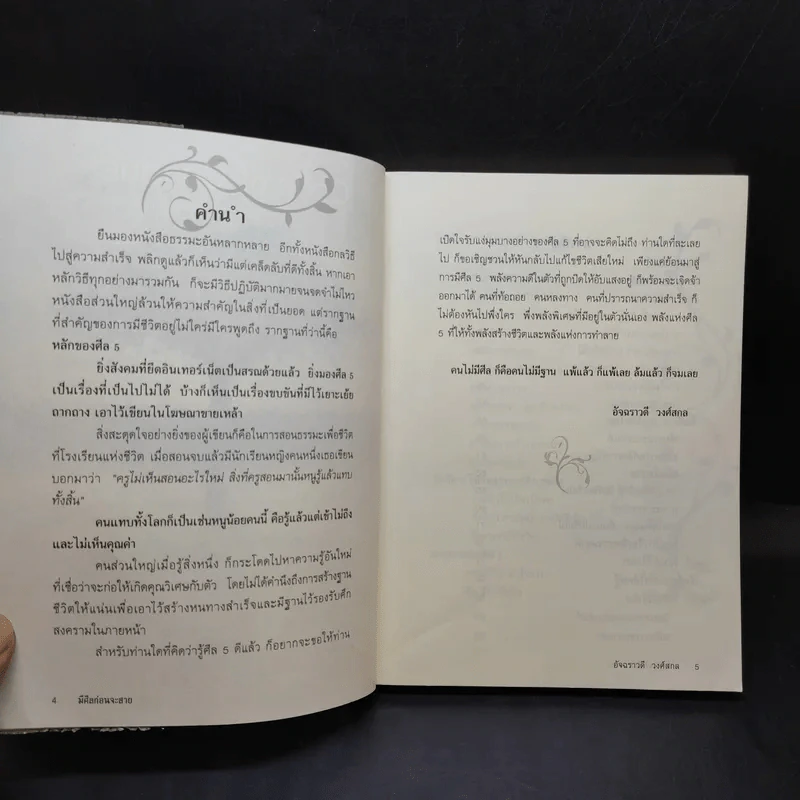 คำนำ
ยืนมองหนังสือธรรมะอันหลากหลาย อีกทั้งหนังสือกลวิธี
ไปสู่ความสำเร็จ พลิกดูแล้วก็เห็นว่ามีแต่เคล็ดลับที่ดีทั้งสิ้น หากเอา
หลักวิธีทุกอย่างมารวมกัน ก็จะมีวิธีปฏิบัติมากมายจนจดจำไม่ไหว
หนังสือส่วนใหญ่ล้วนให้ความสำคัญในสิ่งที่เป็นยอด แต่รากฐาน
ที่สำคัญของการมีชีวิตอยู่ไม่ใคร่มีใครพูดถึง รากฐานที่ว่านี้คือ
หลักของศีล 5
ยิ่งสังคมที่ยึดอินเทอร์เน็ตเป็นสรณด้วยแล้ว ยิ่งมองศีล 5
เป็นเรื่องที่เป็นไปไม่ได้ บ้างก็เห็นเป็นเรื่องขบขันที่มีไว้เยาะเย้ย
ถากถาง เอาไว้เขียนในโฆษณาขายเหล้า
สิ่งสะดุดใจอย่างยิ่งของผู้เขียนก็คือในการสอนธรรมะเพื่อชีวิต
ที่โรงเรียนแห่งชีวิต เมื่อสอนจบแล้วมีนักเรียนหญิงคนหนึ่งเธอเขียน
บอกมาว่า "ครูไม่เห็นสอนอะไรใหม่ สิ่งที่ครูสอนมานั้นหนูรู้แล้วแทบ
ทั้งสิ้น"
คนแทบทั้งโลกก็เป็นเช่นหนูน้อยคนนี้ คือรู้แล้วแต่เข้าไม่ถึง
และไม่เห็นคุณค่า
คนส่วนใหญ่เมื่อรู้สิ่งหนึ่ง ก็กระโดดไปหาความรู้อันใหม่
ที่เชื่อว่าจะก่อให้เกิดคุณวิเศษกับตัว โดยไม่ได้คำนึงถึงการสร้างฐาน
ชีวิตให้แน่นเพื่อเอาไว้สร้างหนทางสำเร็จและมีฐานไว้รองรับศึก
สงครามในภายหน้า
สำหรับท่านใดที่คิดว่ารู้ศีล 5 ดีแล้ว ก็อยากจะขอให้ท่าน
4 มีศีลก่อนจะสาย
เปิดใจรับแง่มุมบางอย่างของศีล 5 ที่อาจจะคิดไม่ถึง ท่านใดที่ละเลย
ไป ก็ขอเชิญชวนให้หันกลับไปแก้ไขชีวิตเสียใหม่ เพียงแค่ย้อนมาสู่
การมีศีล 5 พลังความดีในตัวที่ถูกปิดให้อับแสงอยู่ ก็พร้อมจะเจิดจ้า
ออกมาได้ คนที่ท้อถอย คนหลงทาง คนที่ปรารถนาความสำเร็จ ก็
ไม่ต้องหันไปพึ่งใคร พึ่งพลังพิเศษที่มีอยู่ในตัวนั่นเอง พลังแห่งศีล
5 ที่ให้ทั้งพลังสร้างชีวิตและพลังแห่งการทำลาย
คนไม่มีศีล ก็คือคนไม่มีฐาน แพ้แล้ว ก็แพ้เลย ล้มแล้ว ก็จมเลย
อัจฉราวดี วงศ์สกล
อัจฉราวดี วงศ์สกล 5